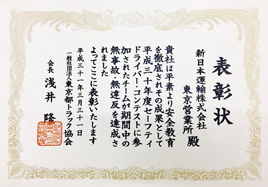 表彰状
新日本運輸株式会社
東京営業所 殿
貴社は平素より安全教育
を徹底されその成果として
平成三十年度セーフティ
ドライバー・コンテストに参
加されたチームが期間中
無事故・無違反を達成さ
れました
よってここに表彰いたします
平成三十一年三月三十一日
一般社団法人東京都トラック協会
会長 浅井 隆